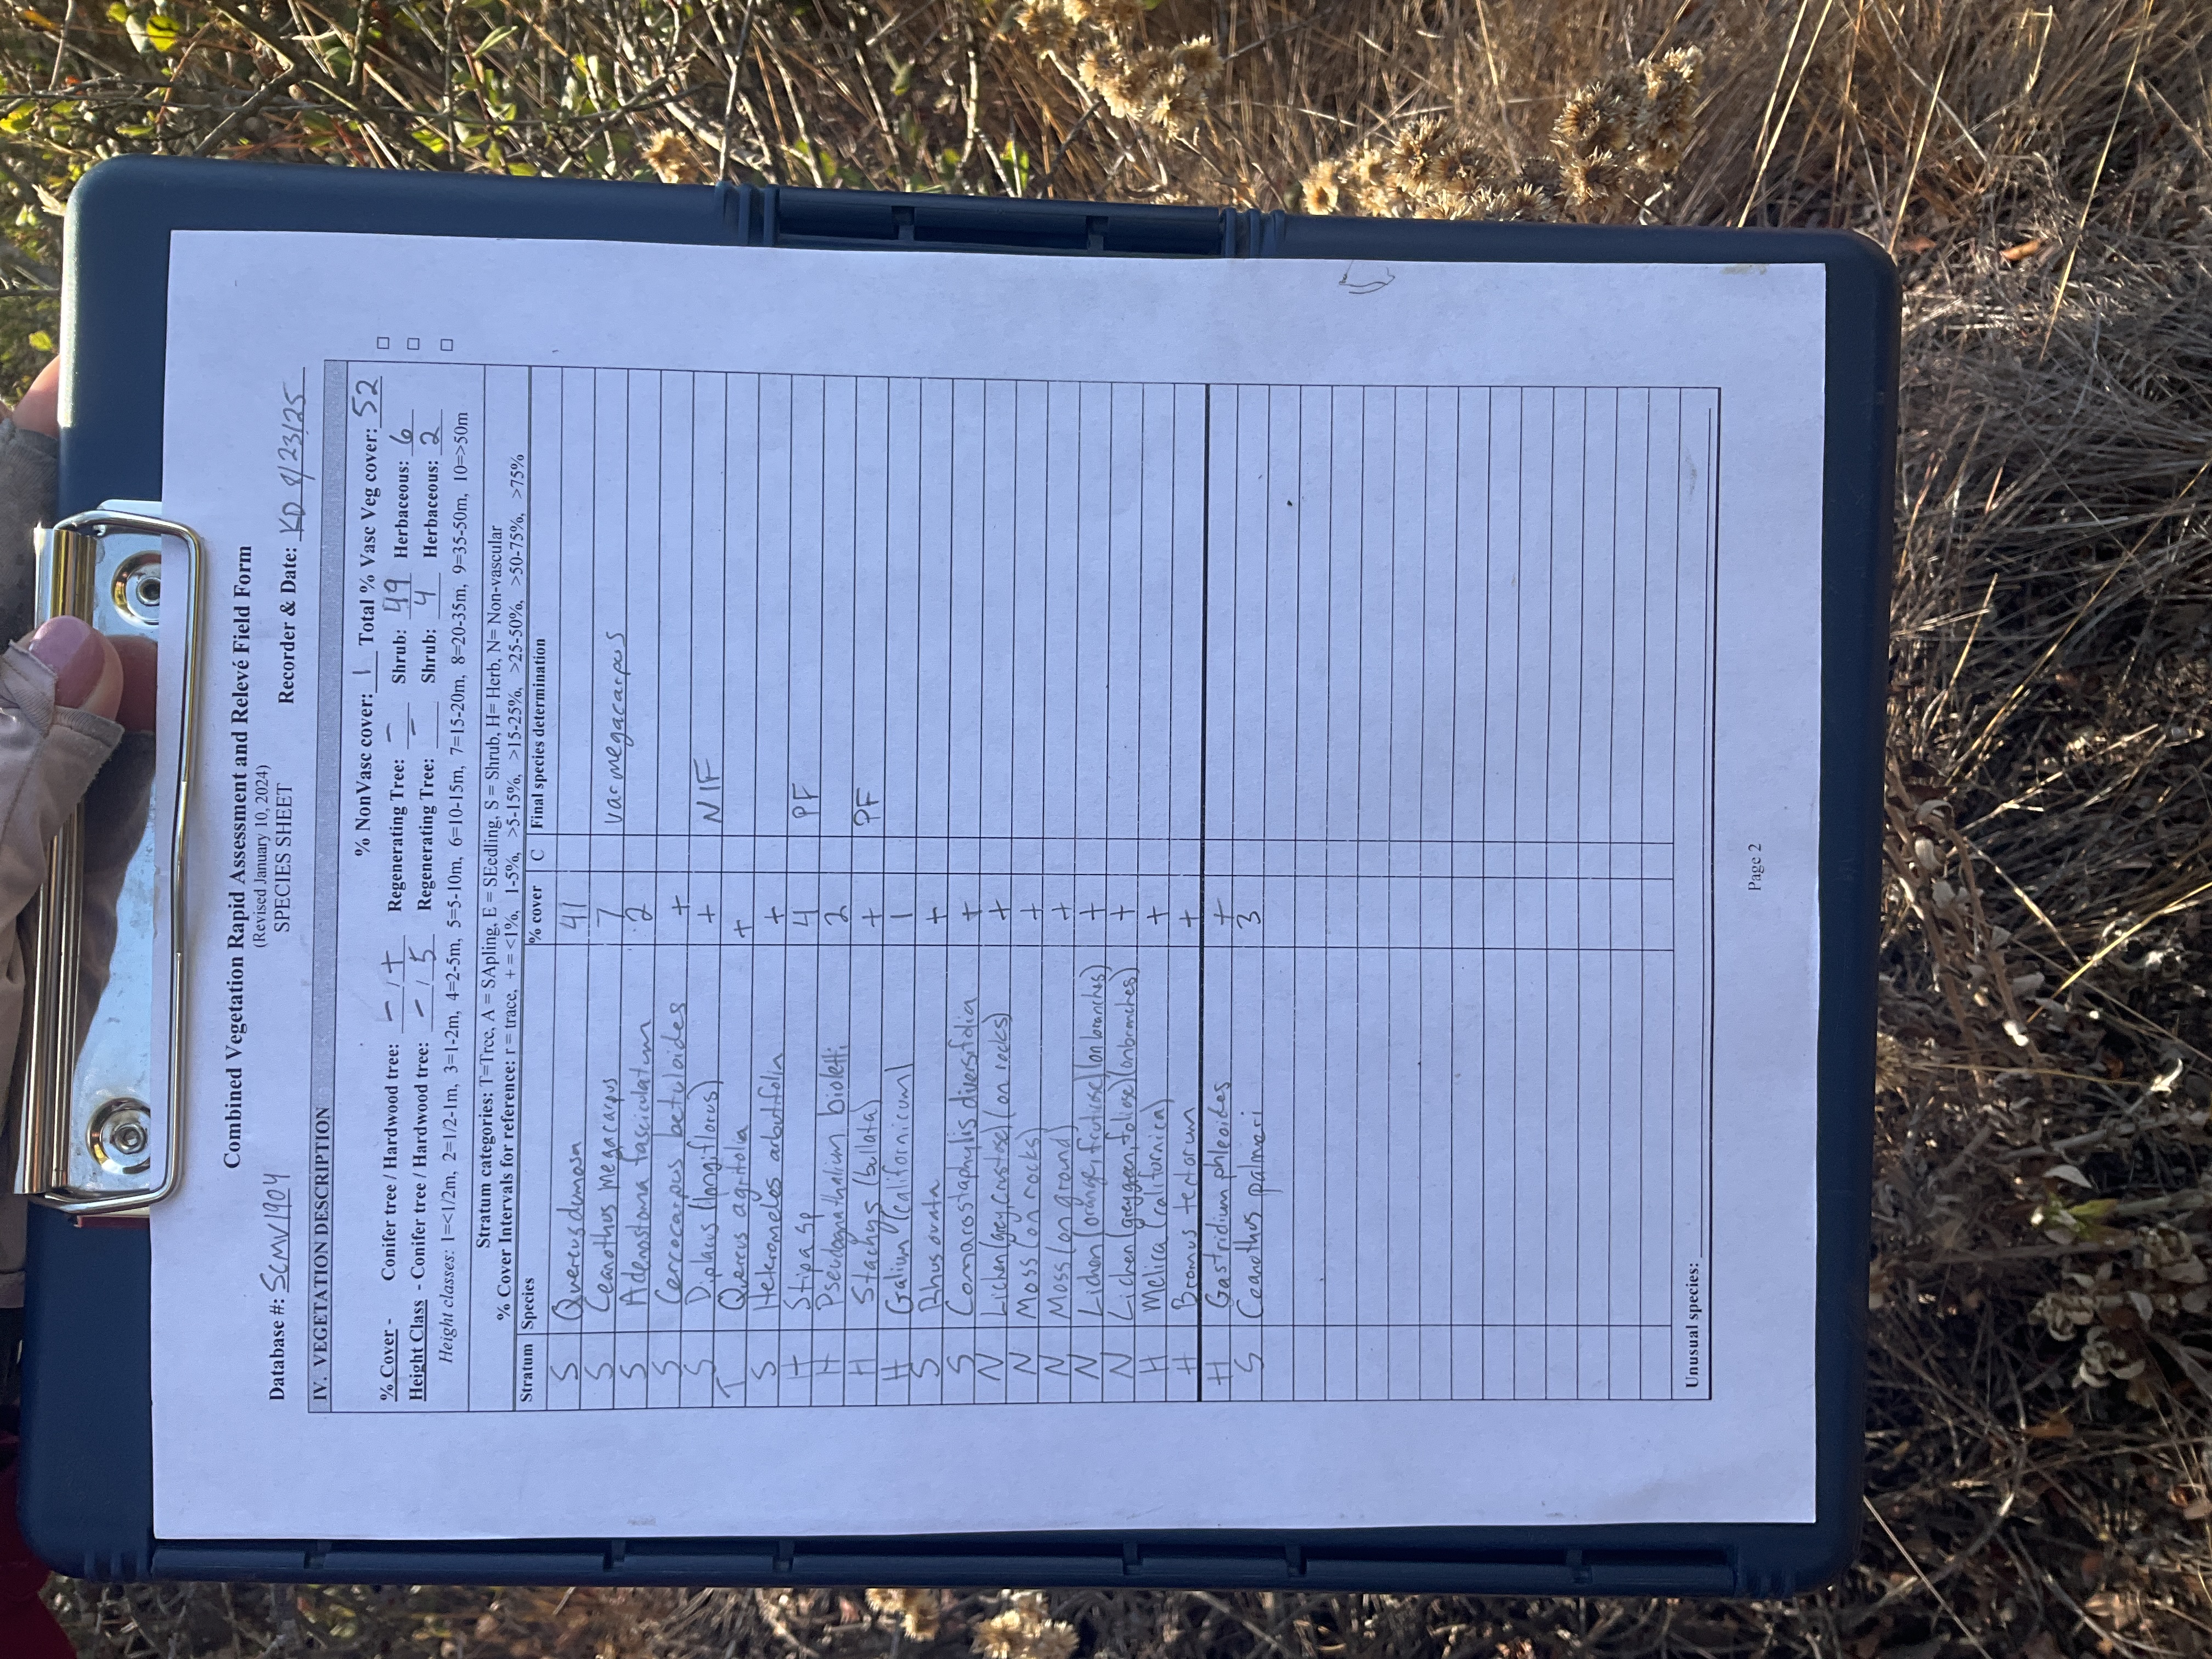 Combined Vegetation Rapid Assessment and Relevé Field Form
(Revised January 10, 2024)
SPECIES SHEET
Database #: SCMV1904 Recorder & Date: KD 9/23/25
IV. VEGETATION DESCRIPTION
% NonVasc cover: 1 Total % Vasc Veg cover: 52
% Cover - Conifer tree / Hardwood tree: - / + Regenerating Tree: - Shrub: 49 Herbaceous: 6
Height Class - Conifer tree / Hardwood tree: - / 5 Regenerating Tree: - Shrub: 4 Herbaceous: 2
Height classes: 1=<1/2m, 2=1/2-1m, 3=1-2m, 4=2-5m, 5=5-10m, 6=10-15m, 7=15-20m, 8=20-35m, 9=35-50m, 10=>50m
Stratum categories: T=Tree, A = SApling, E = SEedling, S = Shrub, H= Herb, N= Non-vascular
% Cover Intervals for reference: r = trace, + = <1%, 1-5%, >5-15%, >15-25%, >25-50%, >50-75%, >75%
Stratum Species % cover C Final species determination
S Quercus dumosa 41
S Ceanothus megacarpus 7 var megacarpus
S Adenostoma fasciculatum 2
S Cercocarpus betuloides +
S Diplacus (longiflorus) + NIF
T Quercus agrifolia +
S Heteromeles arbutifolia +
H Stipa sp 4 PF
H Pseudognathalium bioletti 2
H Stachys (bullata) + PF
H Galium (californicum) 1
S Rhus ovata +
S Comarostaphylis diversifolia +
N Lichen (grey, crustose) (on rocks) +
N Moss (on rocks) +
N Moss (on ground) +
N Lichen (orange, fruticose) (on branches) +
N Lichen (greygreen, foliose) (on branches) +
H Melica (californica) +
H Bromus tentorum +
H Gastridium phleoides +
S Ceanothus palmeri 3
Unusual species:
Page 2